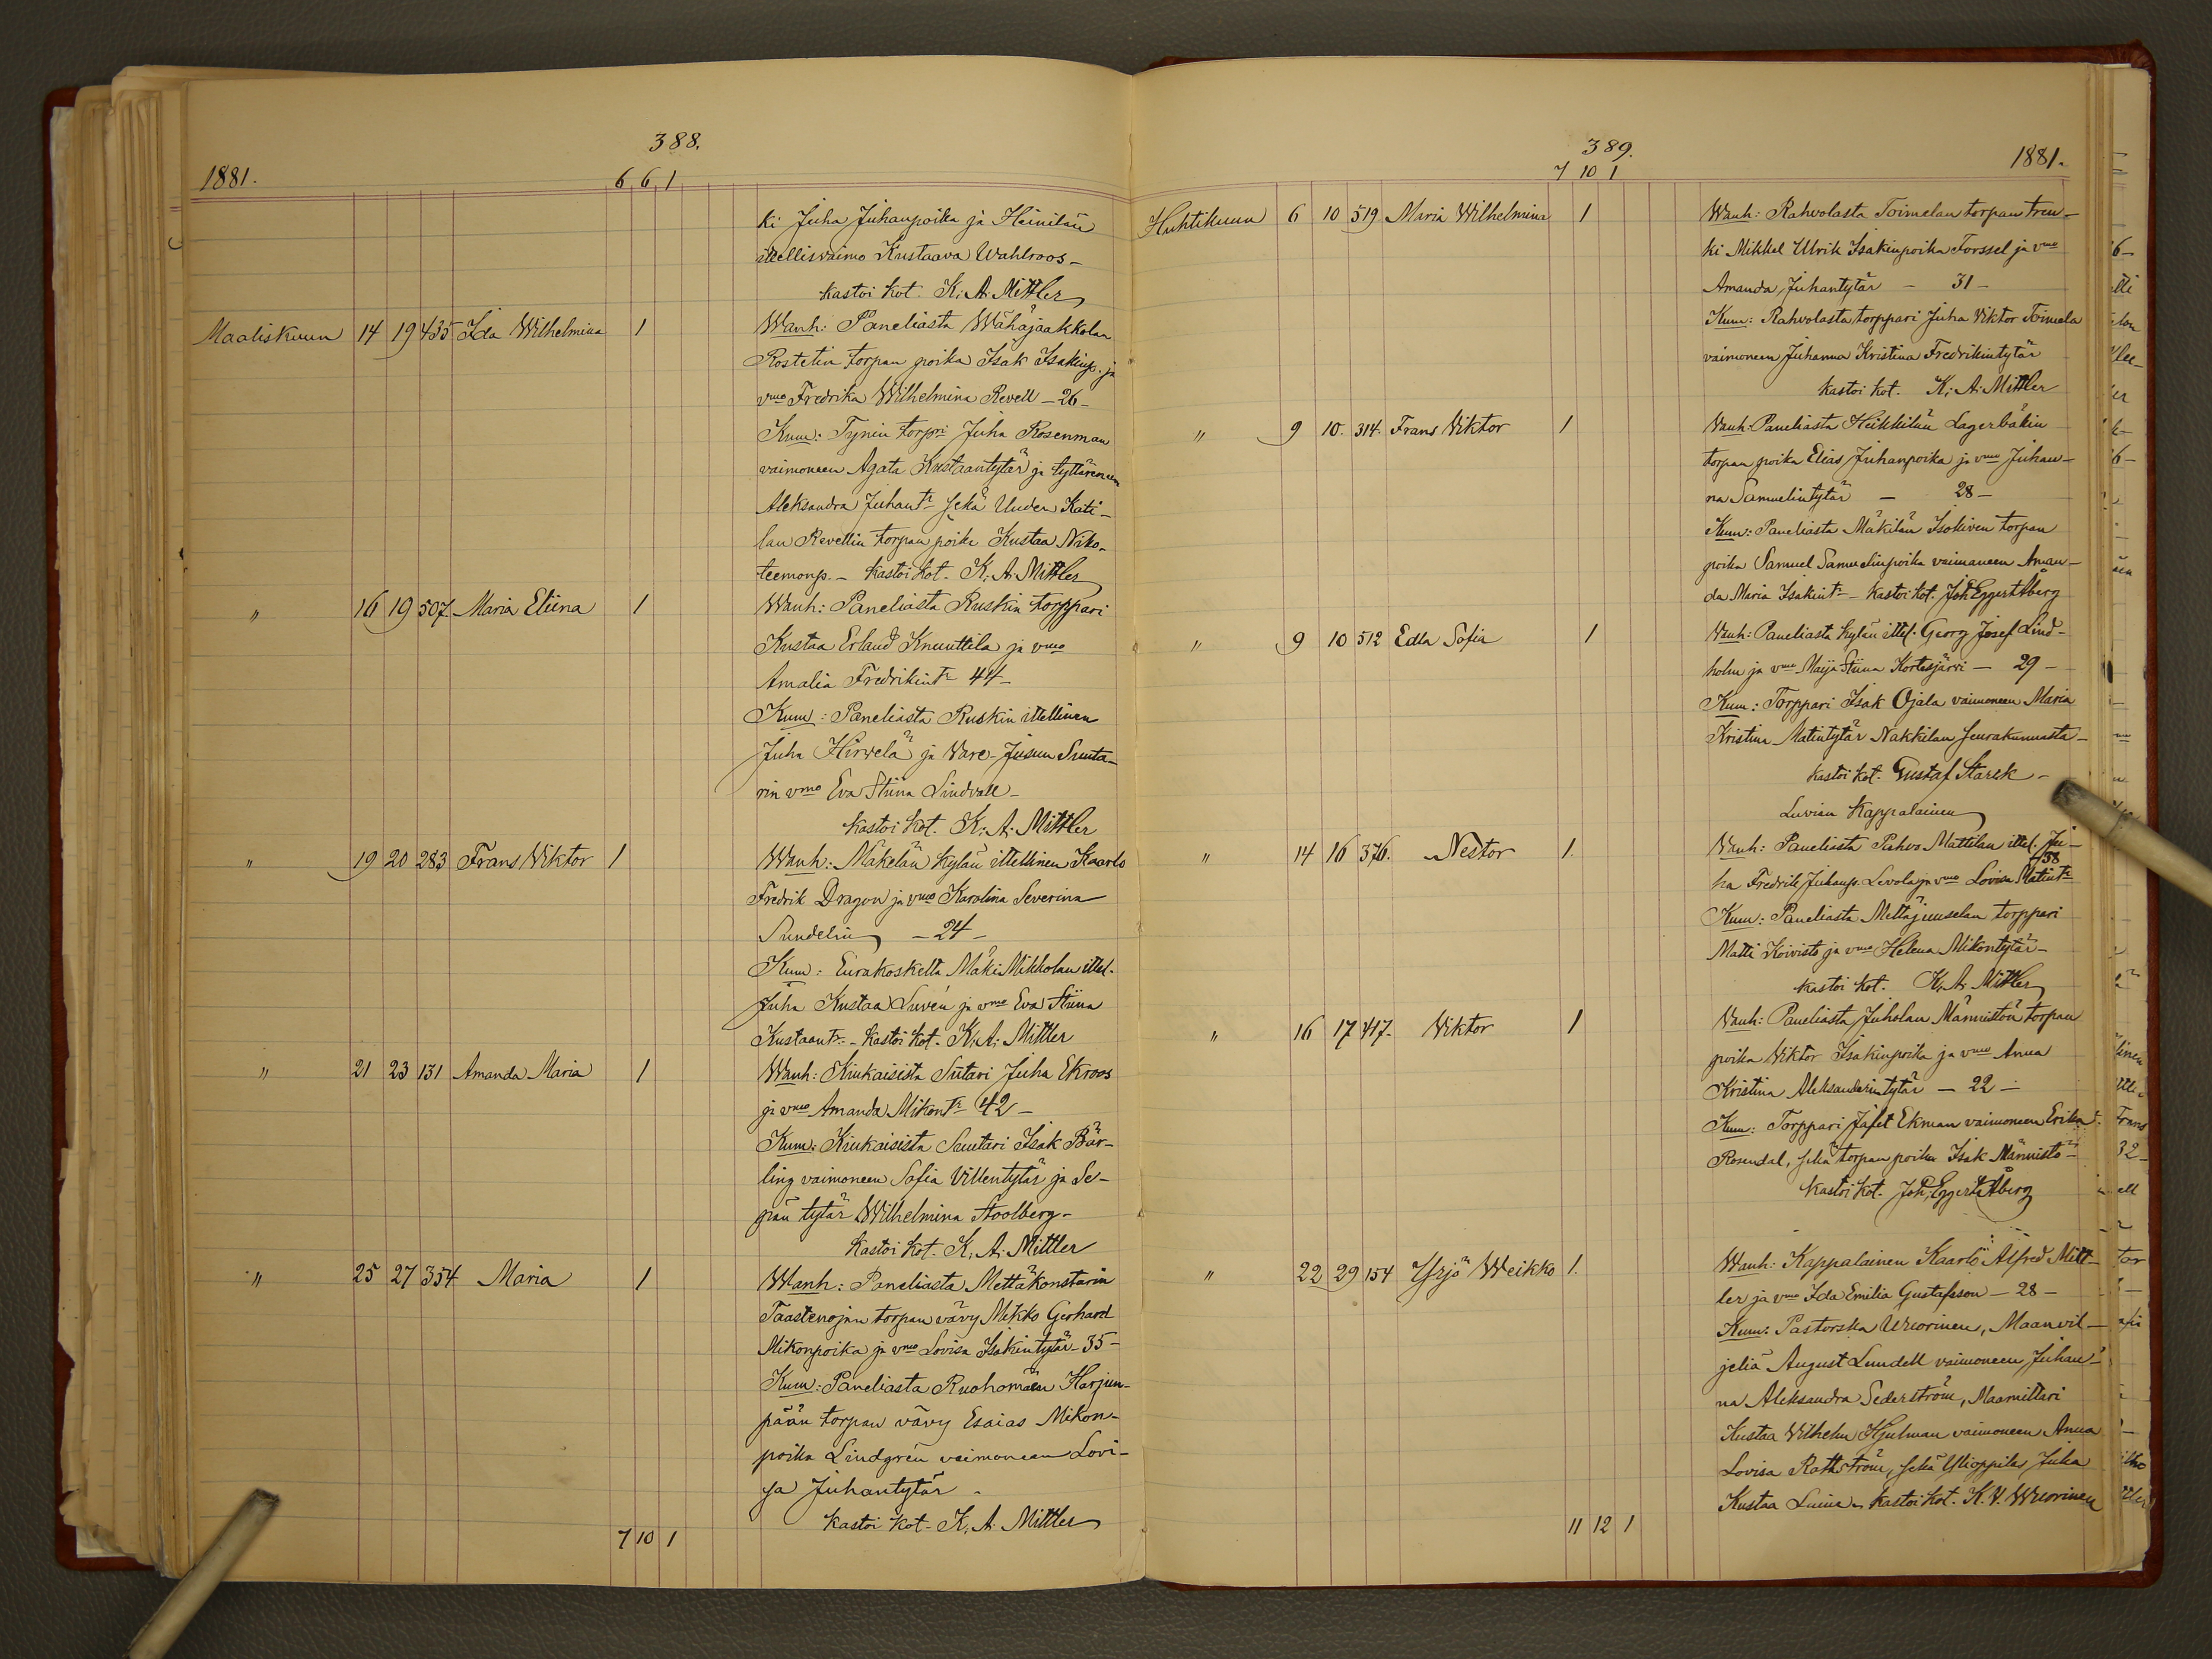 388.
1881.
6 6 1
ki Juha Juhanpoika ja Heinilän
itellisvaimo Kustaava Wahlroos –
kastoi kot. K. A. Mittler
Maaliskuun 14 19 435 Ida Wilhelmina 1 Wanh: Paneliasta Wähäjaakkolan
Rostetin torpan poika Isak Isakinp. ja
vmo Fredrika Wilhelmina Revell – 26 –
Kum: Tynin torpri Juha Rosenman
vaimoneen Agata Kustaantytär ja tyttärensä
Aleksandra Juhantr sekä Uuden Kati-
lan Revellin torpan poika Kustaa Niko-
teemonp. – kastoi kot. K. A. Mittler
" 16 19 507. Maria Eliina 1 Wanh: Paneliasta Ruskin torppari
Kustaa Erland Knuuttila ja vmo
Amalia Fredrikintr 44 –
Kum: Paneliasta Ruskin itellinen
Juha Hirvelä ja Vare-Jusun Suuta-
rin vmo Eva Stiina Lindvall –
kastoi kot. K. A. Mittler
" 19 20 283 Frans Viktor 1 Wanh: Mäkelän kylän itellinen Kaarlo
Fredrik Dragon ja vmo Karolina Severina
Sundelin – 24 –
Kum: Eurakoskelta Mäki Mikkolan ittel.
Juha Kustaa Suvén ja vmo Eva Stiina
Kustaantr. – kastoi kot. K. A. Mittler
" 21 23 131 Amanda Maria 1 Wanh: Kiukaisista Sutari Juha Ekroos
ja vmo Amanda Mikontr 42 –
Kum: Kiukaisista Suutari Isak Bär-
ling vaimoneen Sofia Villentytär ja Se-
pän tytär Wilhelmina Stoolberg –
kastoi kot. K. A. Mittler
" 25 27 354 Maria 1 Wanh: Paneliasta Mettäkonstarin
Taastenojan torpan vävy Mikko Gerhard
Mikonpoika ja vmo Lovisa Isakintytär – 35 –
Kum: Paneliasta Ruohomäen Harjun-
pään torpan vävy Esaias Mikon-
poika Lindgrén vaimoneen Lovi-
sa Juhantytär –
kastoi kot. K. A. Mittler
7 10 1
389.
1881.
7 10 1
Huhtikuun 6 10 519 Maria Wilhelmina 1 Wanh: Rahvolasta Toimelan torpan tren-
ki Mikkel Ulrik Isakinpoika Forssel ja vmo
Amanda Juhantytär – 31 –
Kum: Rahvolasta torppari Juha Viktor Toimela
vaimoneen Juhanna Kristina Fredrikintytär
kastoi kot. K. A. Mittler
" 9 10. 314. Frans Viktor 1 Wanh: Paneliasta Heikkilän Lagerbäkin
torpan poika Elias Juhanpoika ja vmo Juhan-
na Samuelintytär – 28 –
Kum: Paneliasta Mäkilän Isokiven torpan
poika Samuel Samuelinpoika vaimoneen Aman-
da Maria Isakintr – kastoi kot. Joh. Eggert Åberg
" 9 10 512 Edla Sofia 1 Wanh: Paneliasta kylän ittel. Georg Josef Lind-
holm ja vmo Maija Stiina Kortesjärvi – 29 –
Kum: Torppari Isak Ojala vaimoneen Maria
Kristina Matintytär Nakkilan seurakunnasta –
kastoi kot. Gustaf Starck –
Luvian Kappalainen
" 14 16 376. Nestor 1. Wanh: Paneliasta Pahvo Mattilan ittel. Ju-
ha Fredrik Juhanp. Levola ja vmo Lovisa Matintr 38
Kum: Paneliasta Mettäjuuselan torppari
Matti Koivisto ja vmo Helena Mikontytär –
kastoi kot. K. A. Mittler
" 16 17 417. Viktor 1 Wanh: Paneliasta Juholan Männistön torpan
poika Viktor Isakinpoika ja vmo Anna
Kristina Aleksanderintytär – 22 –
Kum: Torppari Jafet Ekman vaimoneen Erika
Rosendal, sekä torpan poika Isak Männistö –
kastoi kot. Joh. Eggert Åberg
" 22 29 154 Yrjö Weikko 1. Wanh: Kappalainen Kaarlo Alfred Mitt-
ler ja vmo Ida Emilia Gustafsson – 28 –
Kum: Pastorska Wuorinen, Maanvil-
jeliä August Lundell vaimoneen Juhan-
na Aleksandra Sederström, Maamittari
Kustaa Vilhelm Hjulman vaimoneen Anna
Lovisa Rathström, sekä Ylioppilas Juha
Kustaa – kastoi kot. K. V. Wuorinen
11 12 1